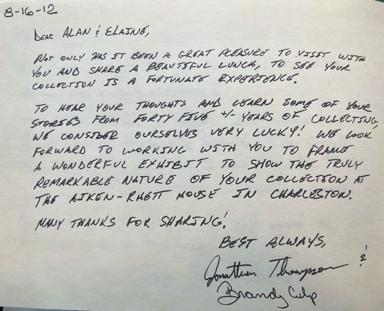 8-16-12
DEAR ALAN & ELAINE,
NOT ONLY HAS IT BEEN A GREAT PLEASURE TO VISIT WITH
YOU AND SHARE A BEAUTIFUL LUNCH, TO SEE YOUR
COLLECTION IS A FORTUNATE EXPERIENCE.
TO HEAR YOUR THOUGHTS AND LEARN SOME OF YOUR
STORIES FROM FORTY FIVE +/- YEARS OF COLLECTING,
WE CONSIDER OURSELVES VERY LUCKY! WE LOOK
FORWARD TO WORKING WITH YOU TO FRAME
A WONDERFUL EXHIBIT TO SHOW THE TRULY
REMARKABLE NATURE OF YOUR COLLECTION AT
THE AIKEN-RHETT HOUSE IN CHARLESTON.
MANY THANKS FOR SHARING!
BEST ALWAYS,
Jonathan Thompson &
Brandy Culp